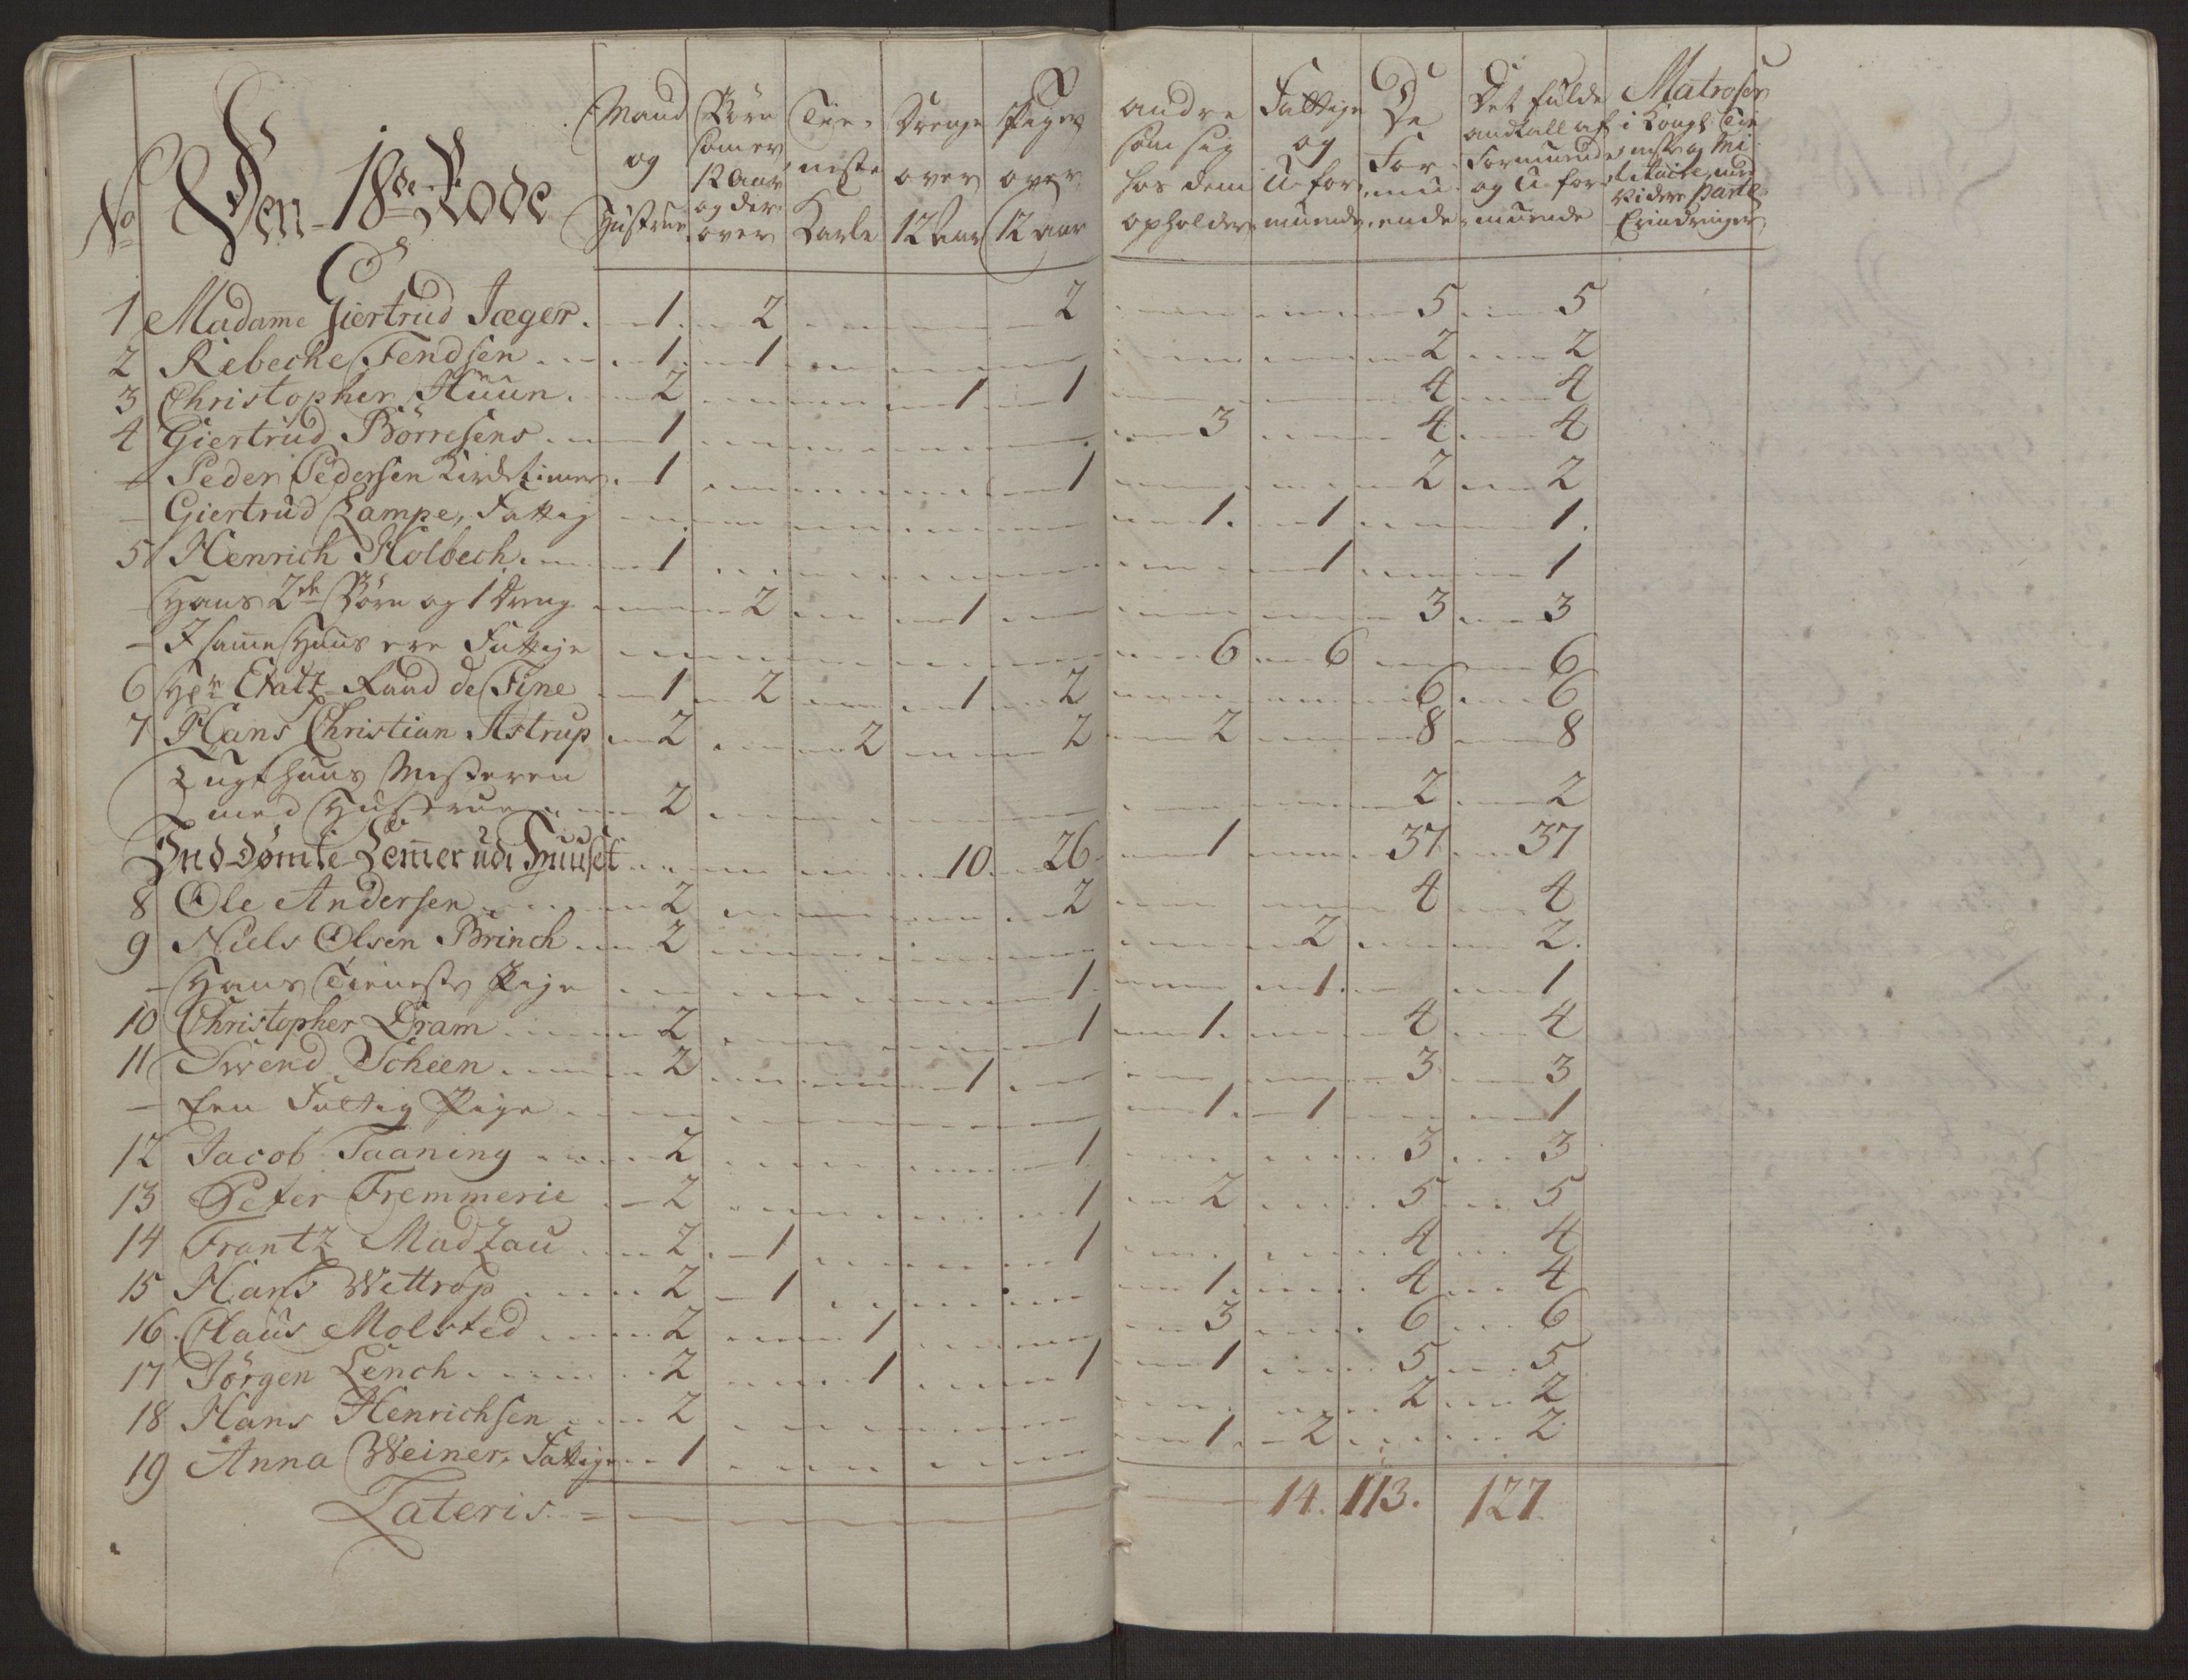 No Den 18de Rode
Mand og Hustrue
Börn som er 12 Aar og der over
Tieneste Karle
Drenge over 12 Aar
Piger over 12 aar
andre som sig hos dem opholder
Fattige og U-formuende
De Formuende
Det fulde andtall af Formuende og U-formuende
Matroser i Kongl: Tieneste og Militaire, med Videre parti Erindringer
1 Madame Giertrud Jæger 1 2 2 5 5
2 Rebecke Fendsen 1 1 2 2
3 Christopher Huun 2 1 1 4 4
4 Giertrud Börresens 1 3 4 4
- Peder Pedersen 1 1 2 2
- Giertrud Lampe, Fattig 1 1 1
5 Henrich Holbech 1 1 1
- Hans 2de Börn og 1 Dreng 2 1 3 3
- I samme Huus ere Fattige 6 6 6
6 Hr: Etatz Raad de Fine 1 2 1 2 6 6
7 Hans Christian Astrup 2 2 2 2 8 8
Tugthuus Mesteren
med Hustrue 2 2 2
Ind dömte Lemer udi Huuset 10 26 1 37 37
8 Ole Andersen 2 2 4 4
9 Niels Olsen Brinch 2 2 2
- Hans Tieneste Pige 1 1 1
10 Christopher Cram 2 1 1 4 4
11 Swend Scheen 2 1 3 3
- Een Fattig Pige 1 1 1
12 Jacob Taaning 2 1 3 3
13 Peter Fremmerie 2 1 2 5 5
14 Frantz Madzau 2 1 1 4 4
15 Hans Wettrop 2 1 1 4 4
16 Claus Molsted 2 1 3 6 6
17 Jörgen Lench 2 1 1 1 5 5
18 Hans Henrichsen 2 2 2
19 Anna Weiner, Fattige 1 1 2 2
Lateris 14. 113. 127.